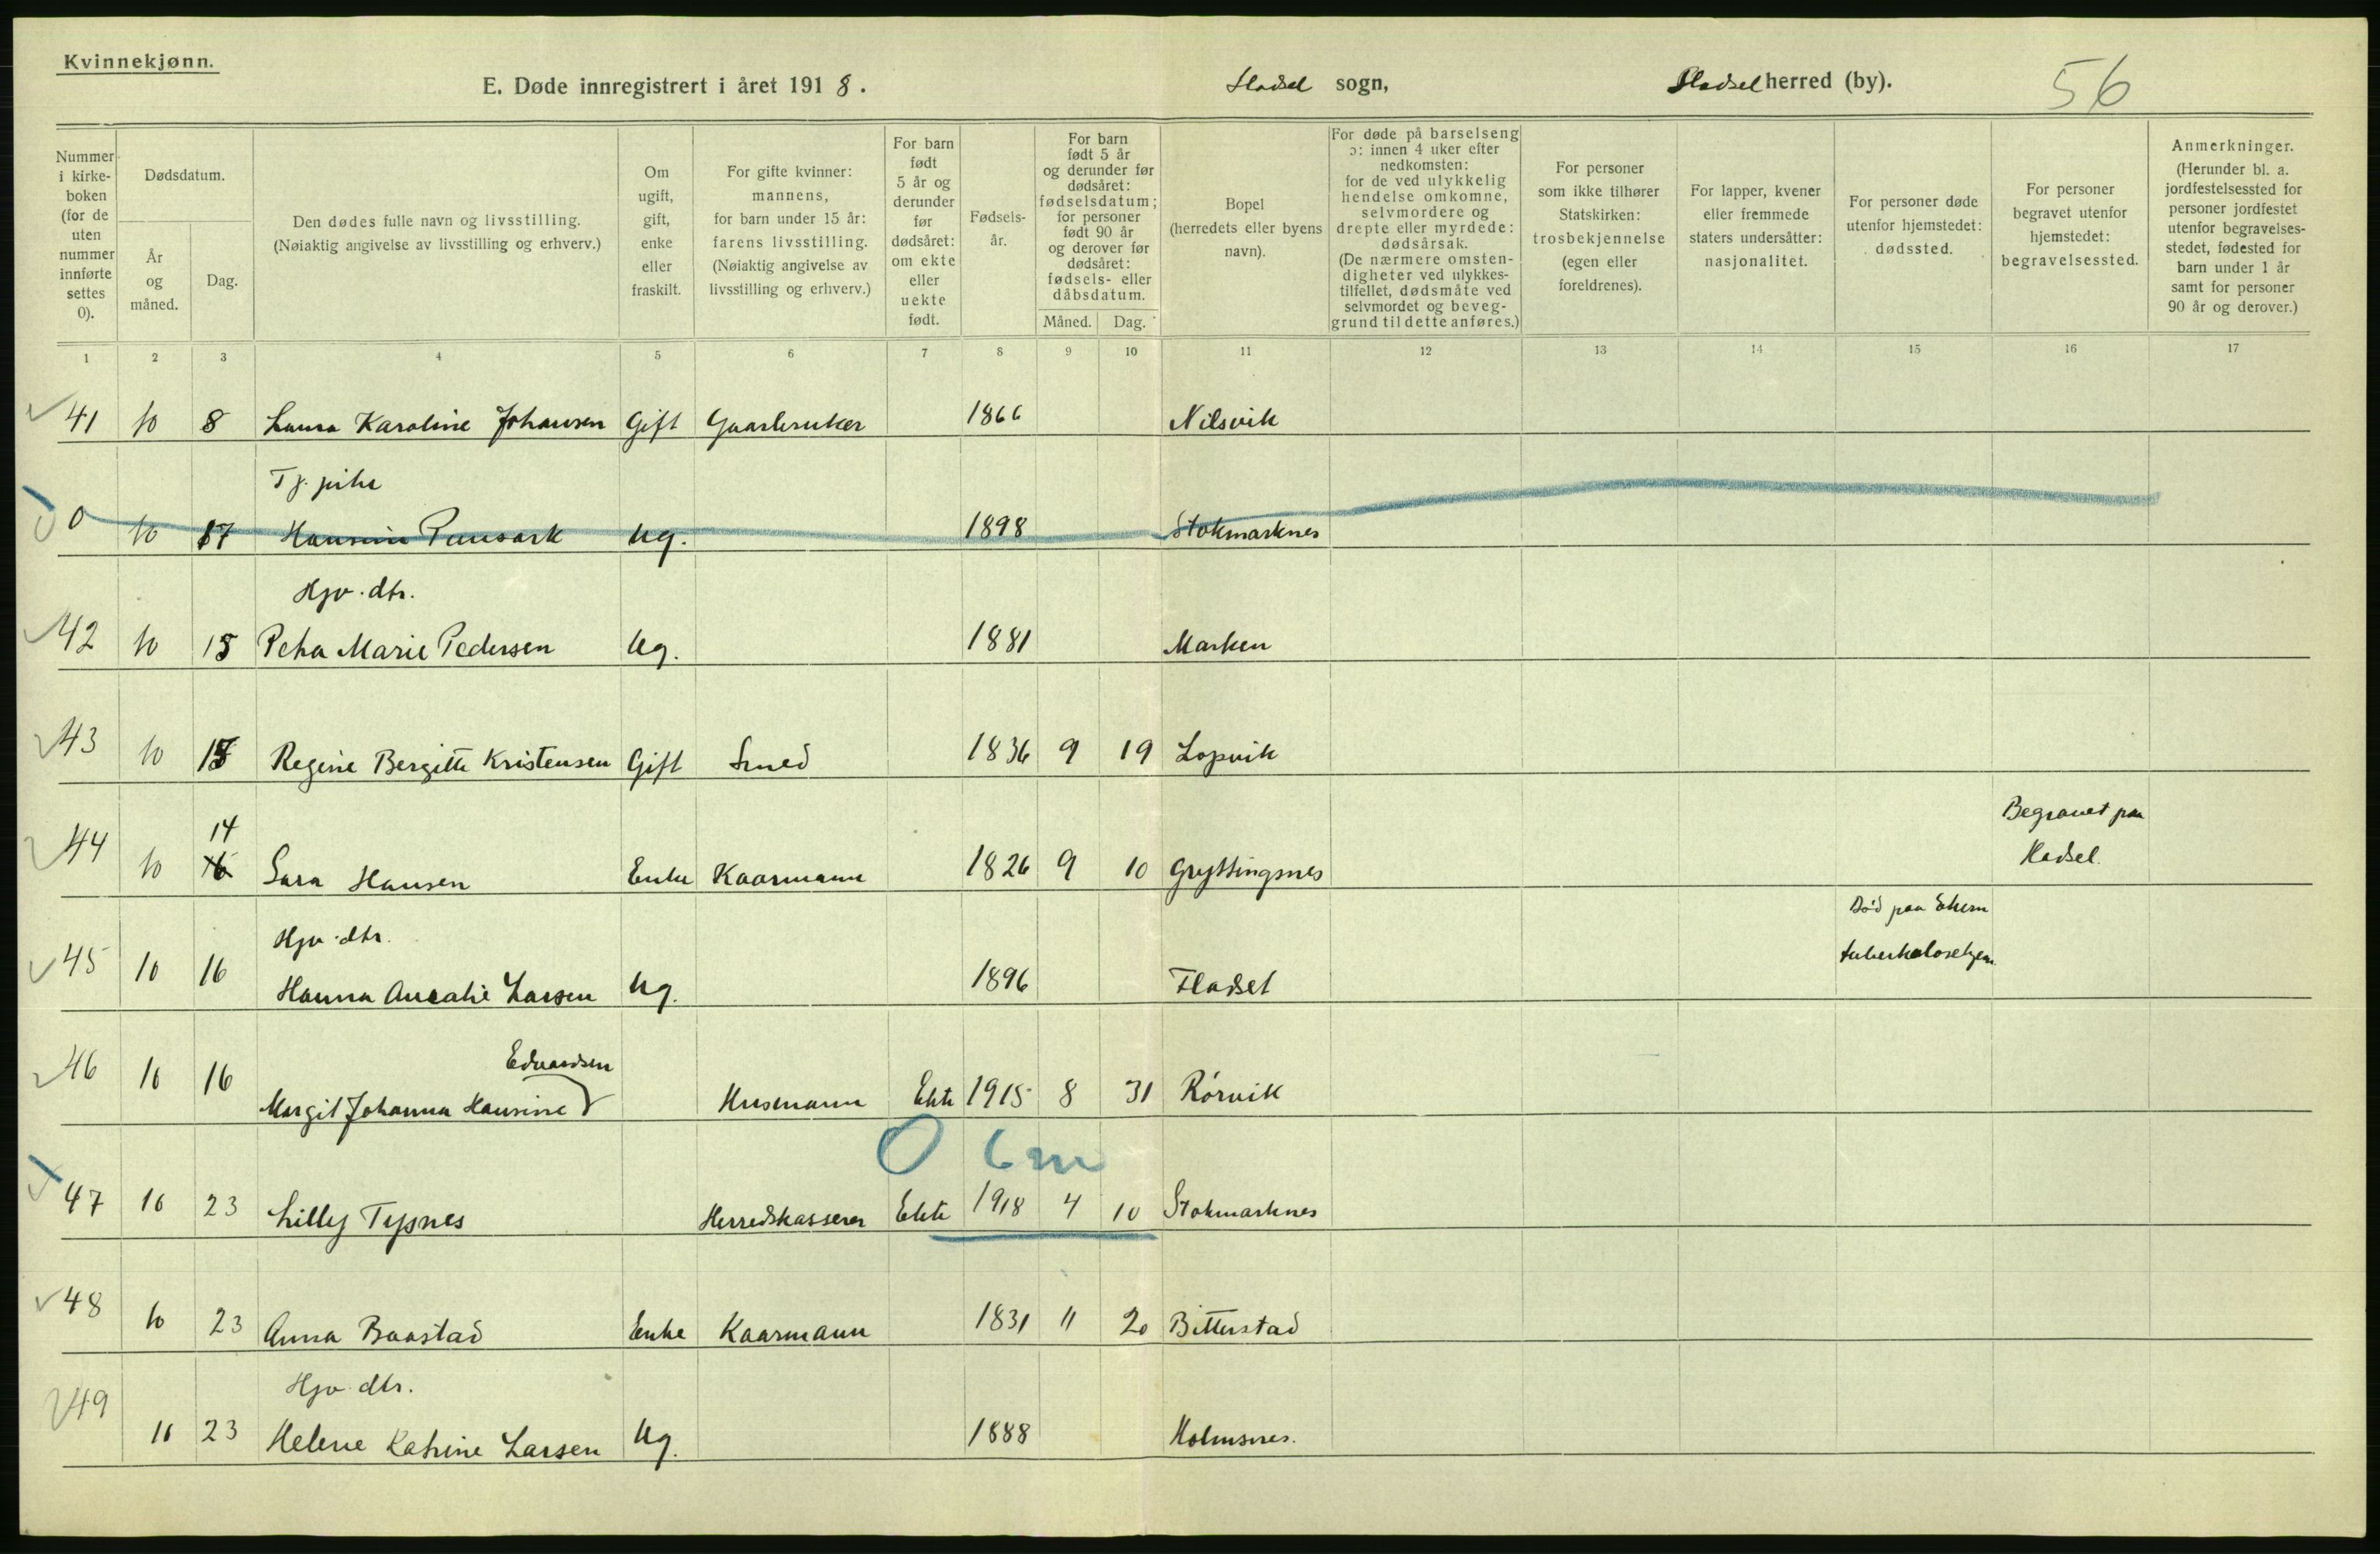 Kvinnekjønn.
E. Døde innregistrert i året 1918. Hadsel sogn, Hadsel herred (by). 56
Nummer i kirkeboken (for de uten nummer innførte settes 0).
Dødsdatum.
År og måned.
Dag.
Den dødes fulle navn og livsstilling.
(Nøiaktig angivelse av livsstilling og erhverv.)
Om ugift, gift, enke eller fraskilt.
For gifte kvinner: mannens, for barn under 15 år: farens livsstilling. (Nøiaktig angivelse av livsstilling og erhverv.)
For barn født 5 år og derunder før dødsåret: om ekte eller uekte født.
Fødsels-år.
For barn født 5 år og derunder før dødsåret: fødselsdatum; for personer født 90 år og derover før dødsåret: fødsels- eller dåbsdatum.
Måned. Dag.
Bopel (herredets eller byens navn).
For døde på barselseng ɔ: innen 4 uker efter nedkomsten: for de ved ulykkelig hendelse omkomne, selvmordere og drepte eller myrdede: dødsårsak. (De nærmere omsten-digheter ved ulykkes-tilfellet, dødsmåte ved selvmordet og beveg-grund til dette anføres.)
For personer som ikke tilhører Statskirken: trosbekjennelse (egen eller foreldrenes).
For lapper, kvener eller fremmede staters undersåtter: nasjonalitet.
For personer døde utenfor hjemstedet: dødssted.
For personer begravet utenfor hjemstedet: begravelsessted.
Anmerkninger. (Herunder bl. a. jordfestelsessted for personer jordfestet utenfor begravelses-stedet, fødested for barn under 1 år samt for personer 90 år og derover.)
1 2 3 4 5 6 7 8 9 10 11 12 13 14 15 16 17
41 10 8 Laura Karoline Johansen Gift Gaardbruker 1866 Nilsvik
Tj. pike
0 10 17 Hansine Ug. 1898 Stokmarknes
Hjv. dtr.
42 10 15 Petra Marie Pedersen Ug. 1881 Marken
43 10 15 Regine Bergitte Kristensen Gift Smed 1836 9 19 Lopvik
14 Begravet paa
44 10 16 Sara Hansen Enke Kaarmann 1826 9 10 Gryttingsnes Hadsel.
Hjv. dtr. Død paa Ekern
45 10 16 Hanna Amalie Larsen Ug. 1896 Fladset tuberkulosehjem.
Edvardsen
46 10 16 Margit Johanna Hansine Husmann Ekte 1915 8 31 Rörvik
0 6 m
47 10 23 Lilly Tysnes Herredskasserer Ekte 1918 4 10 Stokmarknes
48 10 23 Anna Baastad Enke Kaarmann 1831 11 20 Bitterstad
Hjv. dtr.
49 10 23 Helene Katrine Larsen Ug. 1888 Holmsnes.